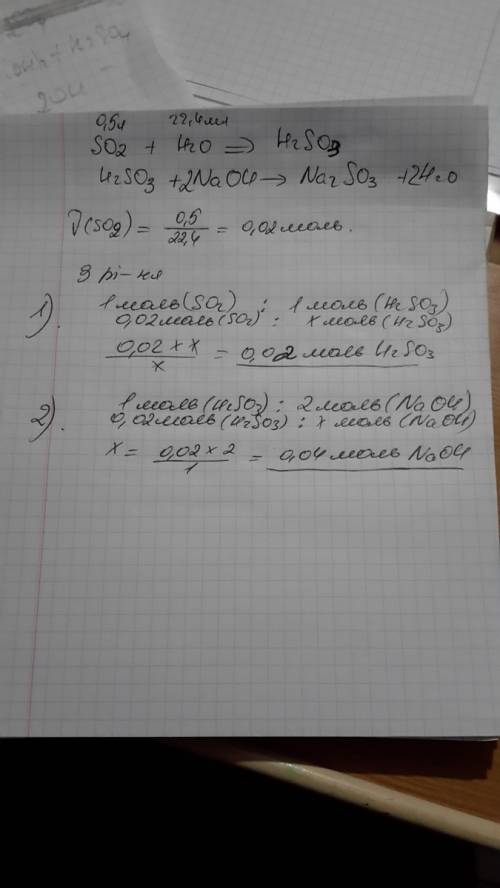 0,5л 22,4мл
SO2 + H2O ⇒ H2SO3
H2SO3 + 2NaOH → Na2SO3 + 2H2O
ν(SO2) = 0,5/22,4 = 0,02 моль.
З рі-ня
1). 1 моль (SO2) : 1 моль (H2SO3)
0,02 моль (SO2) : x моль (H2SO3)
0,02 × x / x = 0,02 моль H2SO3
2). 1 моль (H2SO3) : 2 моль (NaOH)
0,02 моль (H2SO3) : x моль (NaOH)
x = 0,02 × 2 / 1 = 0,04 моль NaOH